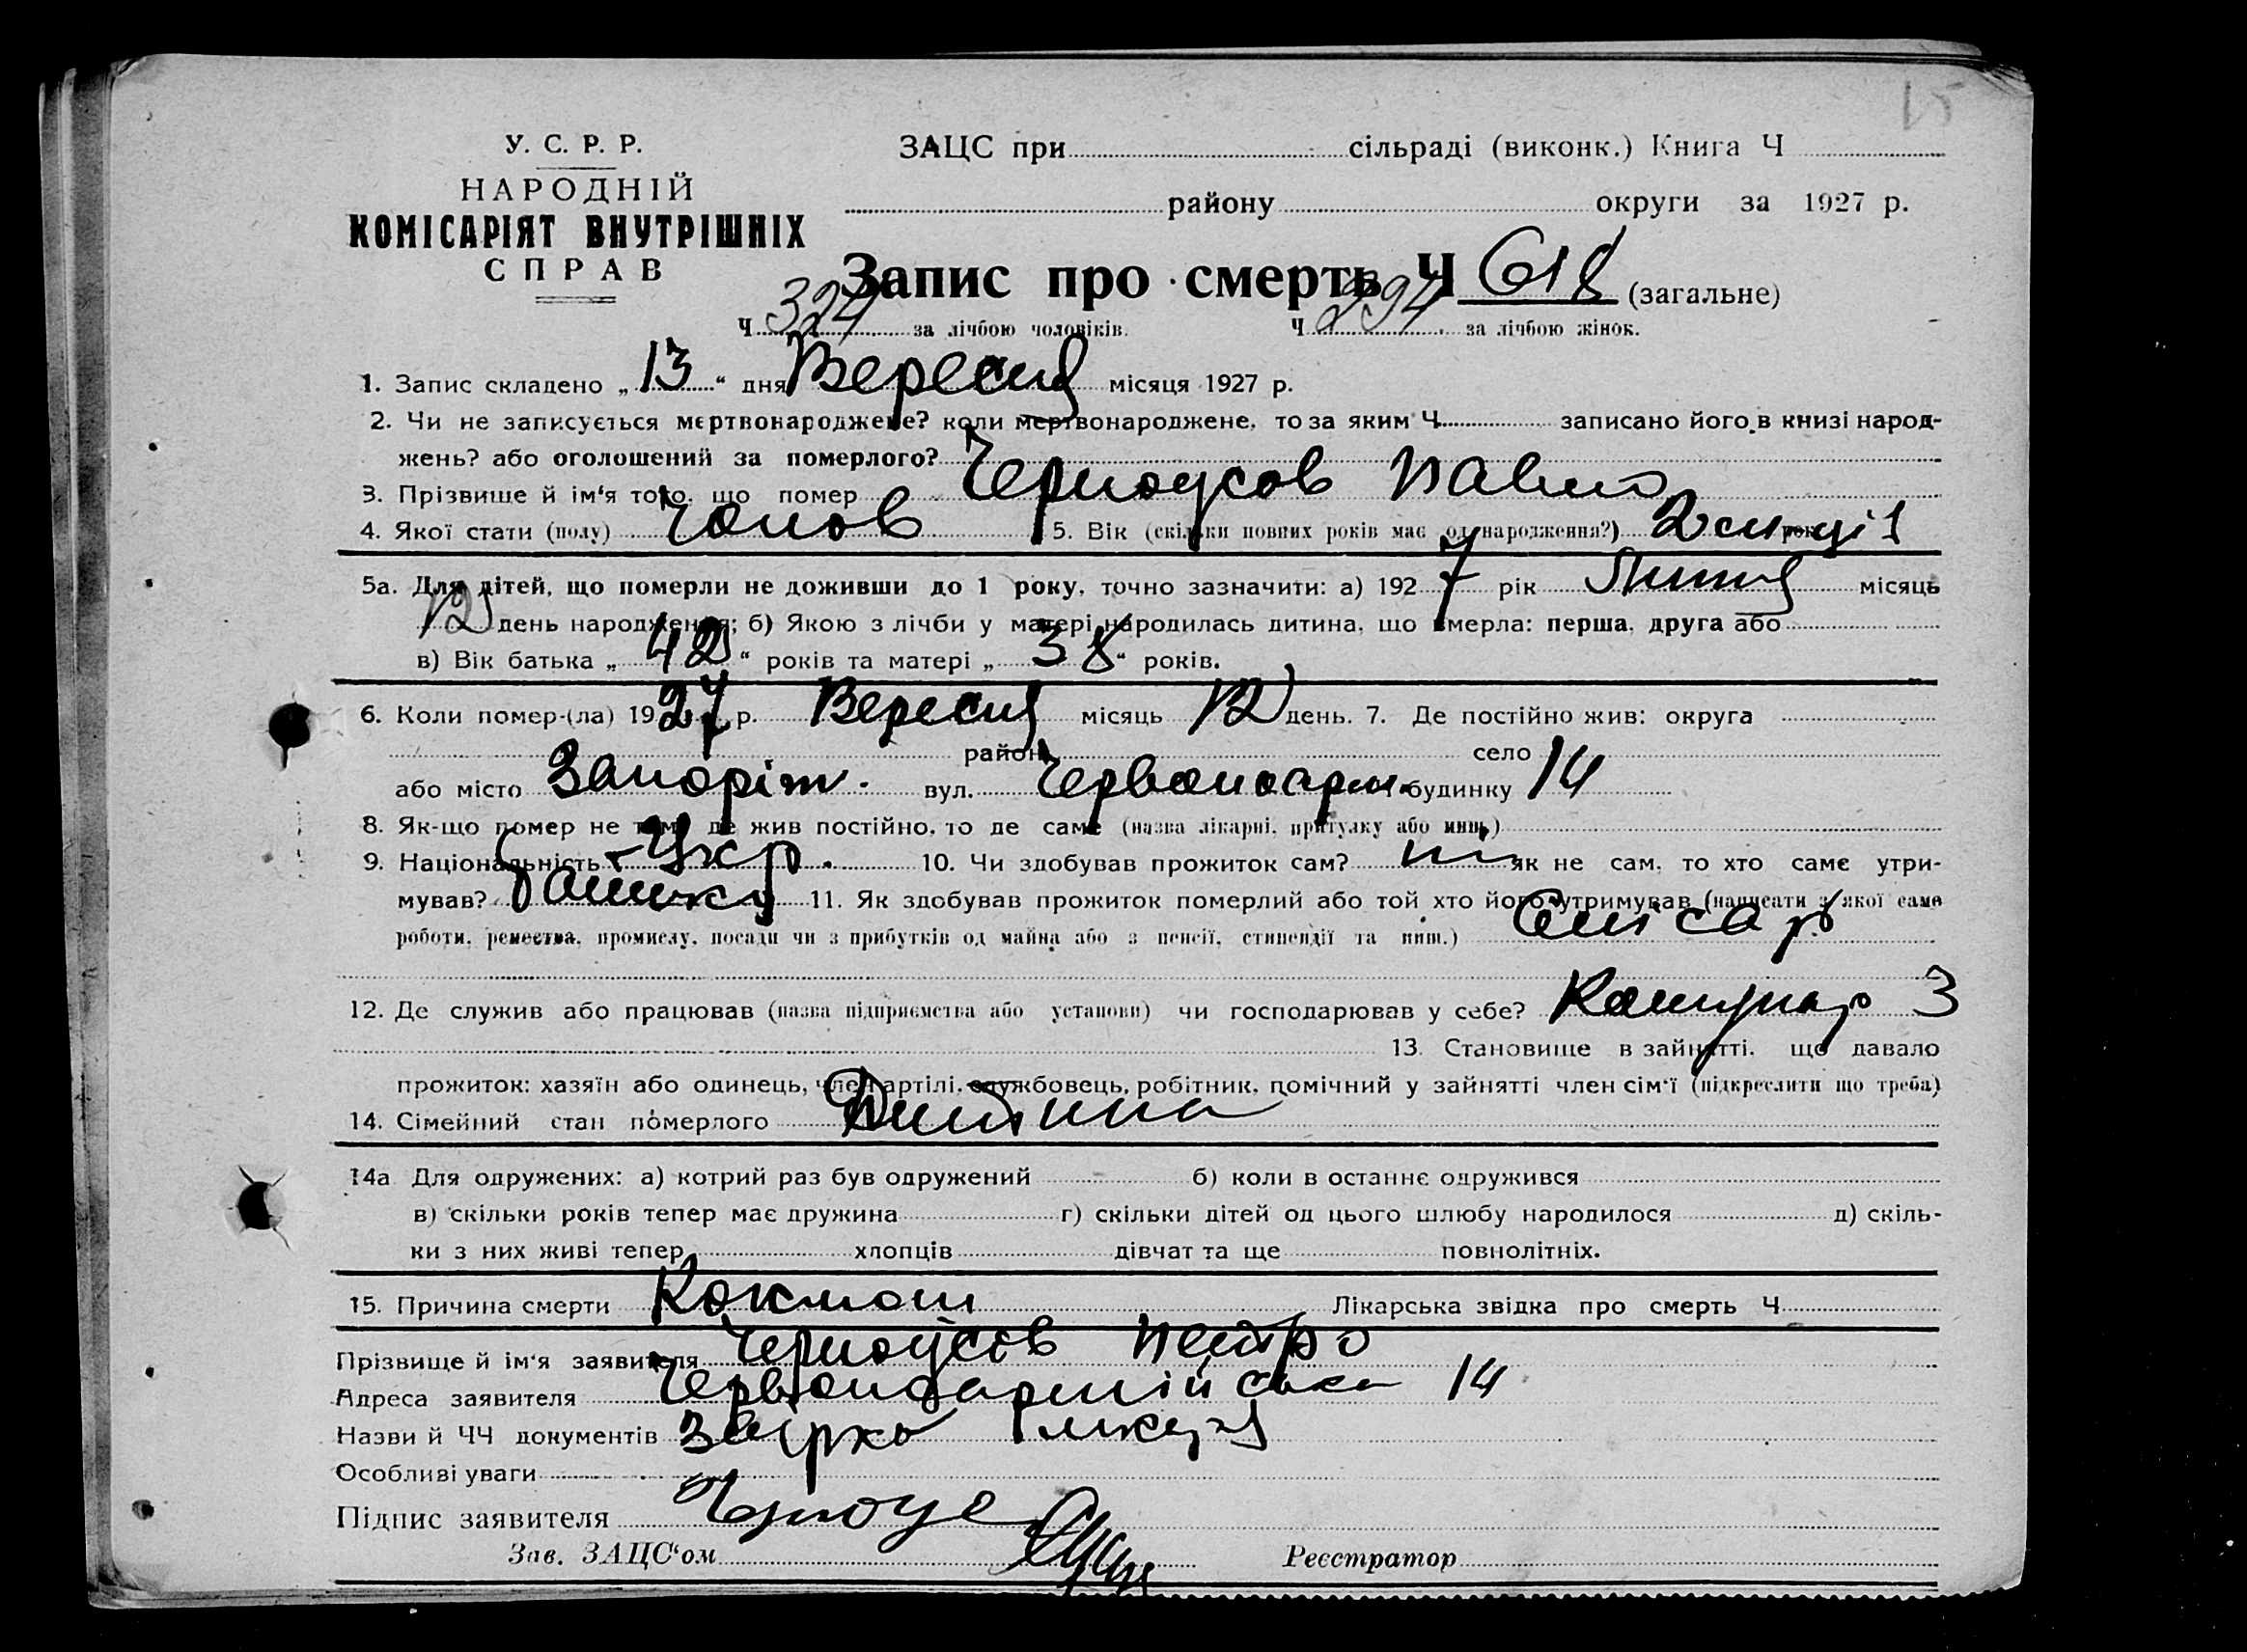 15
У. С. Р. Р.
НАРОДНІЙ
КОМІСАРІЯТ ВНУТРІШНІХ
СПРАВ
ЗАЦС при сільраді (виконк.) Книга Ч
району округи за 1927 р.
Запис про смерть Ч 618 (загальне)
Ч 324 за лічбою чоловіків. Ч 294 за лічбою жінок.
1. Запис складено „13“ дня Вересня місяця 1927 р.
2. Чи не записується мертвонароджене? коли мертвонароджене, то за яким Ч. записано його в книзі народ-
жень? або оголошений за померлого?
3. Прізвище й ім'я того, що помер Черноусов Павло
4. Якої стати (полу) Чолов 5. Вік (скільки повних років має од народження?) 2 місяці рок.
5а. Для дітей, що померли не доживши до 1 року, точно зазначити: а) 1927 рік Липня місяць
12 день народження; б) Якою з лічби у матері народилась дитина, що вмерла: перша, друга або
в) Вік батька „42“ років та матері „38“ років.
6. Коли помер-(ла) 1927 р. Вересня місяць 12 день. 7. Де постійно жив: округа
район село
або місто Запоріж. вул. Червоноарм. будинку 14
8. Як-що помер не там, де жив постійно, то де саме (назва лікарні, притулку або инш.)
9. Національність Укр. 10. Чи здобував прожиток сам? ні як не сам, то хто саме утри-
мував? батьку 11. Як здобував прожиток померлий або той хто його утримував (написати з якої саме
роботи, ремества, промислу, посади чи з прибутків од майна або з пенсії, стипендії та инш.) слісар
12. Де служив або працював (назва підприємства або установи) чи господарював у себе? Комунар 3
13. Становище в зайнятті, що давало
прожиток: хазяїн або одинець, член артілі, службовець, робітник, помічний у зайнятті член сім'ї (підкреслити що треба)
14. Сімейний стан померлого Дитина
14а Для одружених: а) котрий раз був одружений б) коли в останнє одружився
в) скільки років тепер має дружина г) скільки дітей од цього шлюбу народилося д) скіль-
ки з них живі тепер хлопців дівчат та ще повнолітніх.
15. Причина смерти Коклюш Лікарська звідка про смерть Ч
Прізвище й ім'я заявителя Черноусов Петро
Адреса заявителя Червоноармійська 14
Назви й ЧЧ документів Звірка лікаря
Особливі уваги
Підпис заявителя Черноус
Зав. ЗАЦС'ом Реєстратор